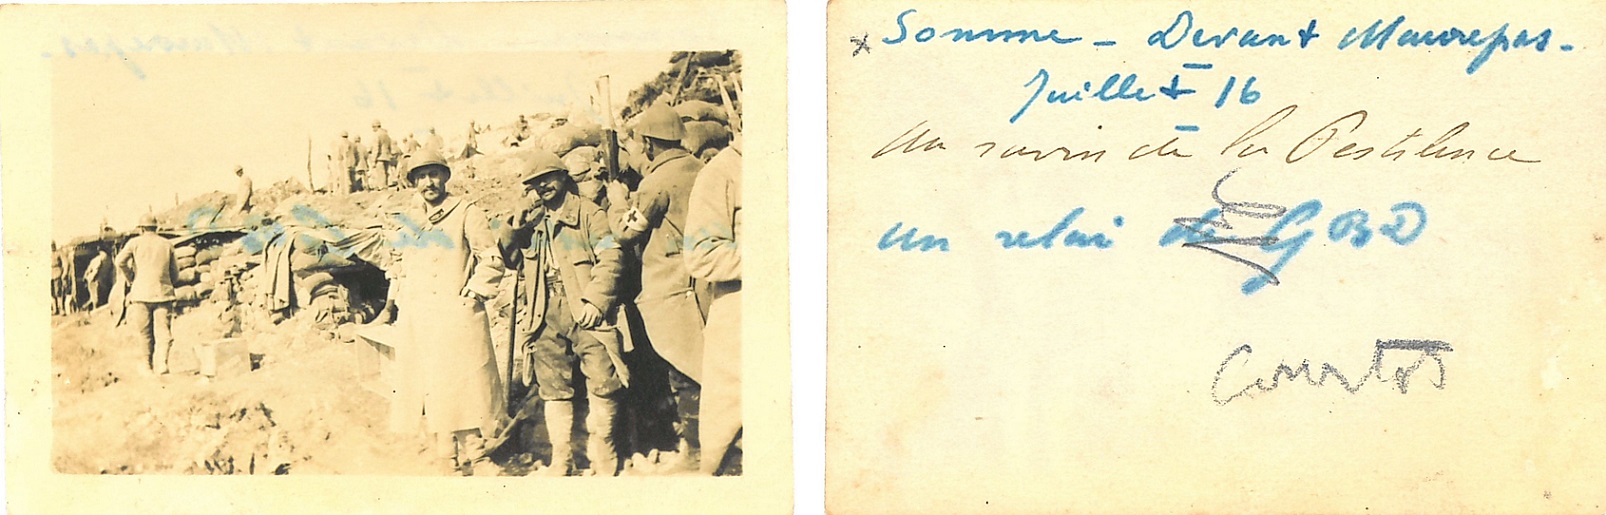 x Somme - Devant Maurepas -
Juillet 16
Au ravin de la Pestilence
un relai de GBD